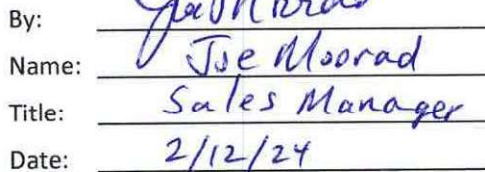 By:
Name: Joe Moorad
Title: Sales Manager
Date: 2/12/24